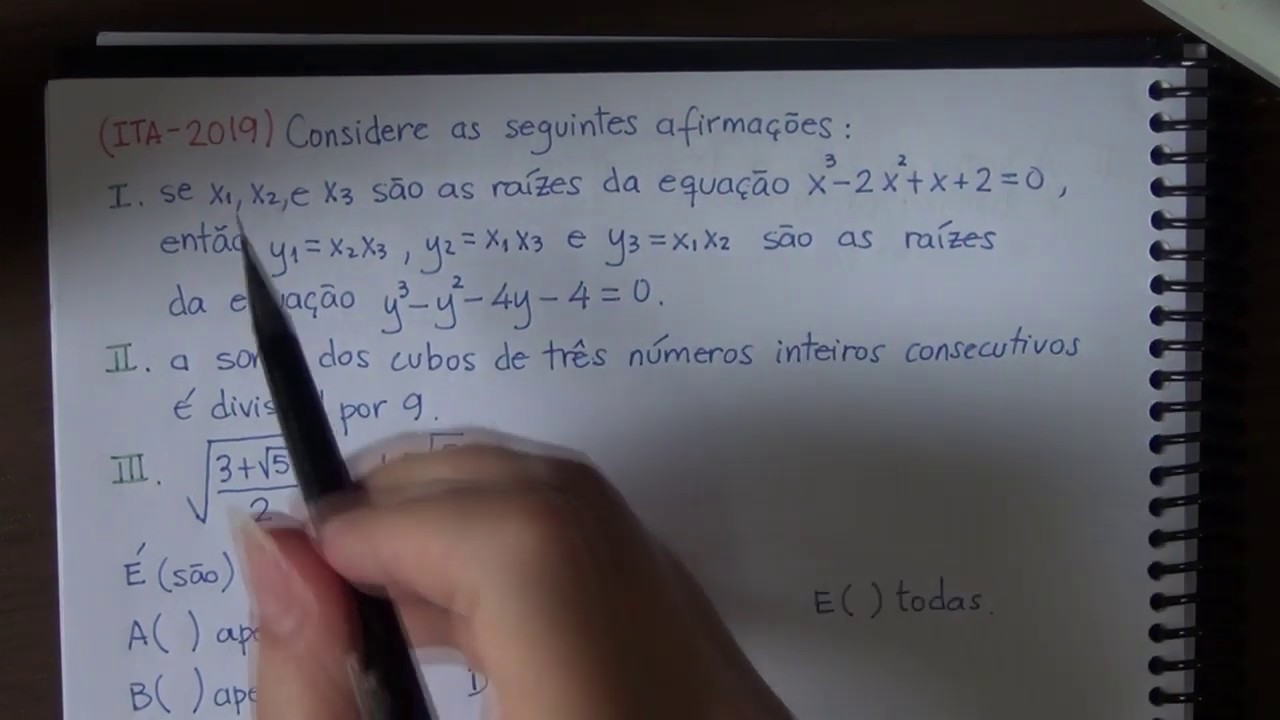 (ITA-2019) Considere as seguintes afirmações:
I. se x₁, x₂, e x₃ são as raízes da equação x³-2x²+x+2=0,
então y₁=x₂x₃, y₂=x₁x₃ e y₃=x₁x₂ são as raízes
da y³-y²-4y-4=0.
II. a dos cubos de três números inteiros consecutivos
é por 9.
III. √((3+√5)/2)
É (são)
A( )
B( )
E( ) todas.